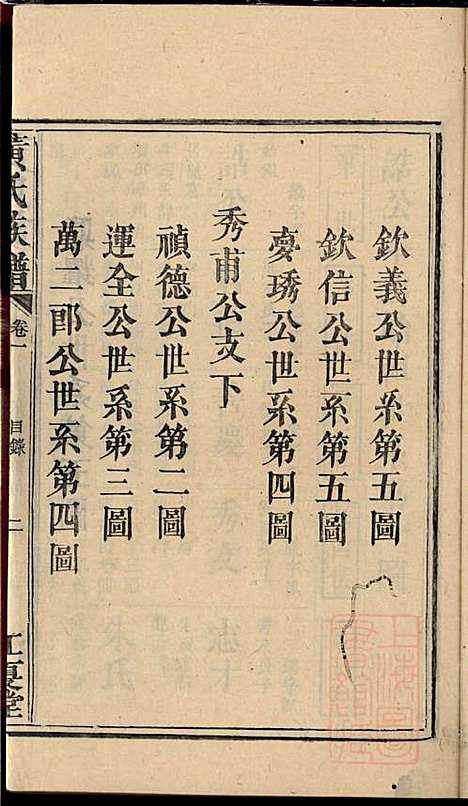 欽義公世系第五圖
欽信公世系第五圖
慶琇公世系第四圖
秀甫公支下
禎德公世系第二圖
運全公世系第三圖
萬二郎公世系第四圖
黃氏族譜
卷一
目錄
二
江夏堂
上海圖書館藏